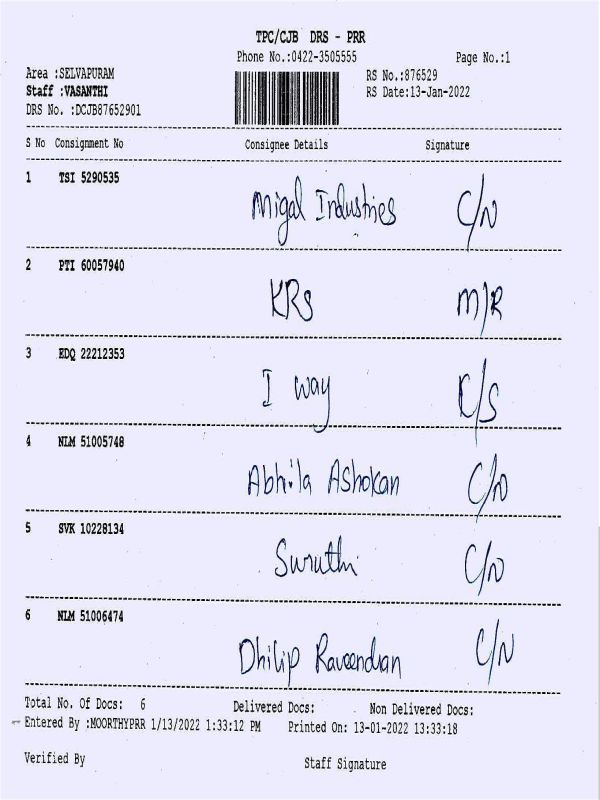 TPC/CJB DRS - PRR
Phone No.:0422-3505555 Page No.:1
Area :SELVAPURAM RS No.:876529
Staff :VASANTHI RS Date:13-Jan-2022
DRS No. :DCJB87652901
S No Consignment No Consignee Details Signature
1 TSI 5290535
Migal Industries C/N
2 PTI 60057940
KRS M/R
3 EDQ 22212353
I way K/S
4 NLM 51005748
Abhila Ashokan C/N
5 SVK 10228134
Suruthi C/N
6 NLM 51006474
Dhilip Raveendran C/N
Total No. Of Docs: 6 Delivered Docs: Non Delivered Docs:
Entered By :MOORTHYPRR 1/13/2022 1:33:12 PM Printed On: 13-01-2022 13:33:18
Verified By Staff Signature